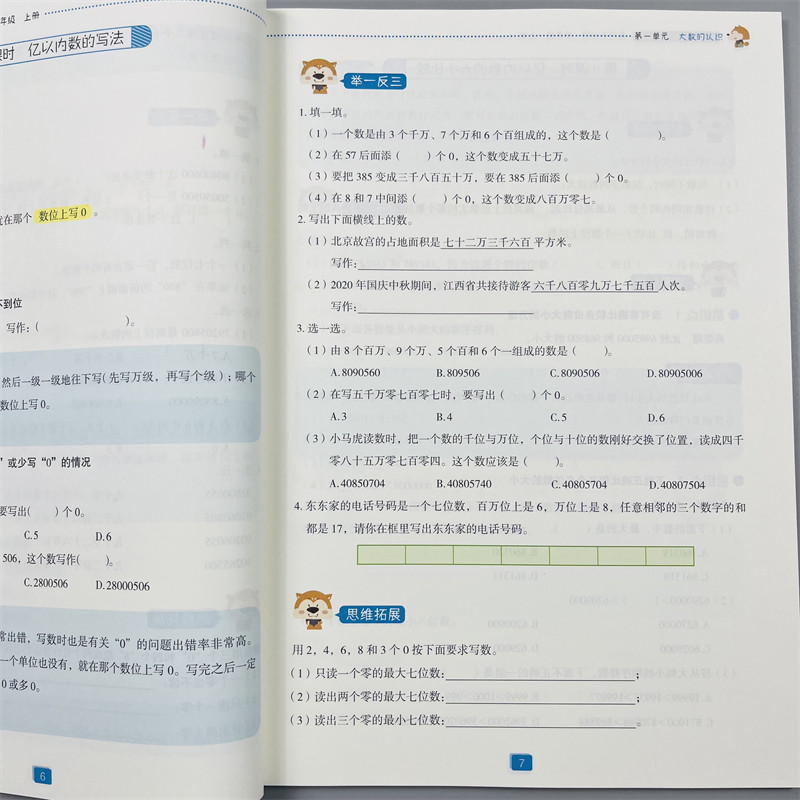 年级 上册
课时 亿以内数的写法
就在那个 数位上写 0 。
不到位
写作：（ ）。
然后一级一级地往下写（先写万级，再写个级）；哪个
数位上写 0。
”或少写“0”的情况
要写出（ ）个 0。
C.5 D.6
506，这个数写作（ ）。
C.2800506 D.28000506
常出错，写数时也是有关“0”的问题出错率非常高。
一个单位也没有，就在那个数位上写 0。写完之后一定
0 或多 0。
6
第一单元 大数的认识
举一反三
1. 填一填。
（1）一个数是由 3 个千万、7 个万和 6 个百组成的，这个数是（ ）。
（2）在 57 后面添（ ）个 0，这个数变成五十七万。
（3）要把 385 变成三千八百五十万，要在 385 后面添（ ）个 0。
（4）在 8 和 7 中间添（ ）个 0，这个数变成八百万零七。
2. 写出下面横线上的数。
（1）北京故宫的占地面积是 七十二万三千六百 平方米。
写作：
（2）2020 年国庆中秋期间，江西省共接待游客 六千八百零九万七千五百 人次。
写作：
3. 选一选。
（1）由 8 个百万、9 个万、5 个百和 6 个一组成的数是（ ）。
A.8090560 B.809506 C.8090506 D.80905006
（2）在写五千万零七百零七时，要写出（ ）个 0。
A.3 B.4 C.5 D.6
（3）小马虎读数时，把一个数的千位与万位，个位与十位的数刚好交换了位置，读成四千
零八十五万零七百零四。这个数应该是（ ）。
A.40850704 B.40805740 C.40805704 D.40807504
4. 东东家的电话号码是一个七位数，百万位上是 6，万位上是 8，任意相邻的三个数字的和
都是 17，请你在框里写出东东家的电话号码。
思维拓展
用 2，4，6，8 和 3 个 0 按下面要求写数。
（1）只读一个零的最大七位数： ；
（2）读出两个零的最大七位数： ；
（3）读出三个零的最小七位数： 。
7